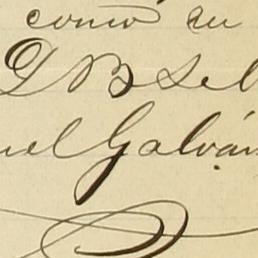 como su
D B Sel
uel Galván